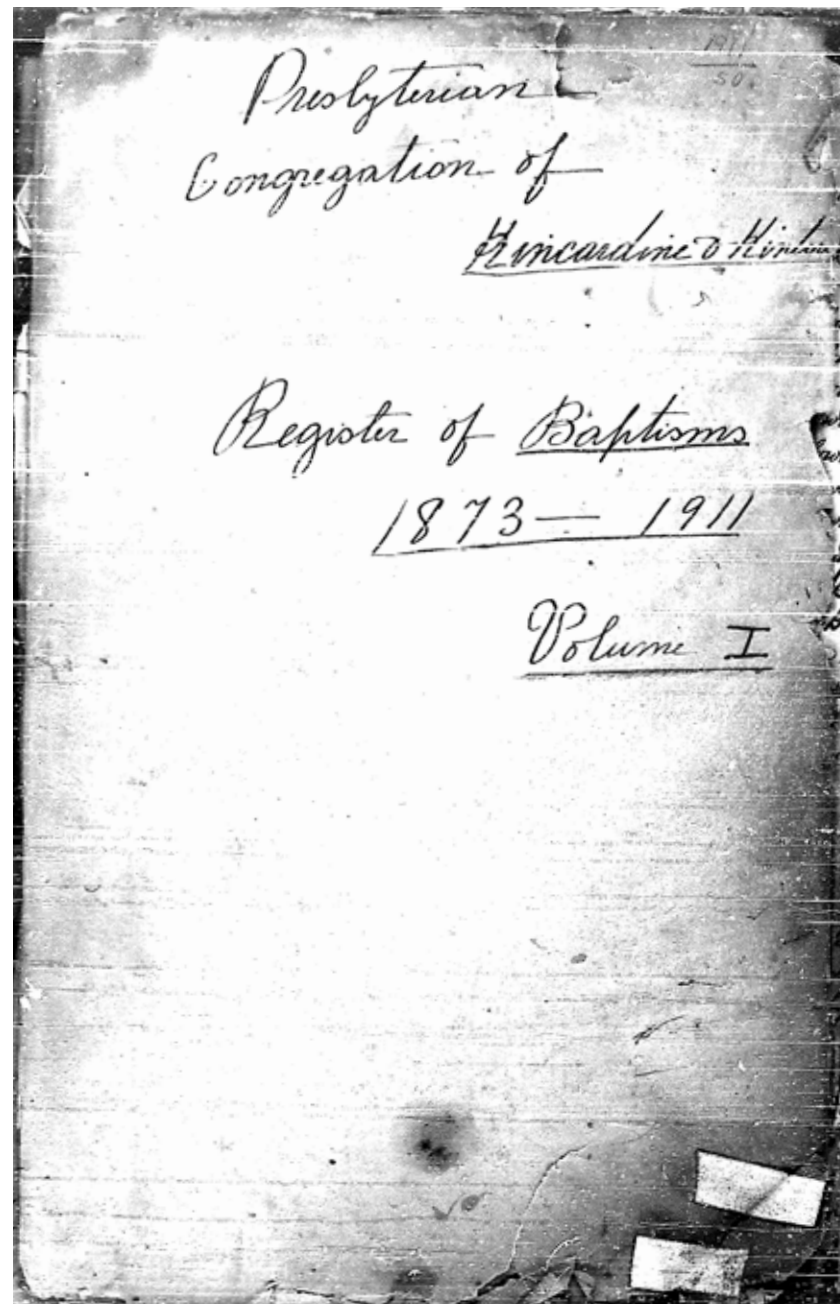 1911
50
Presbyterian
Congregation of
Kincardine &
Register of Baptisms
1873 — 1911
Volume I